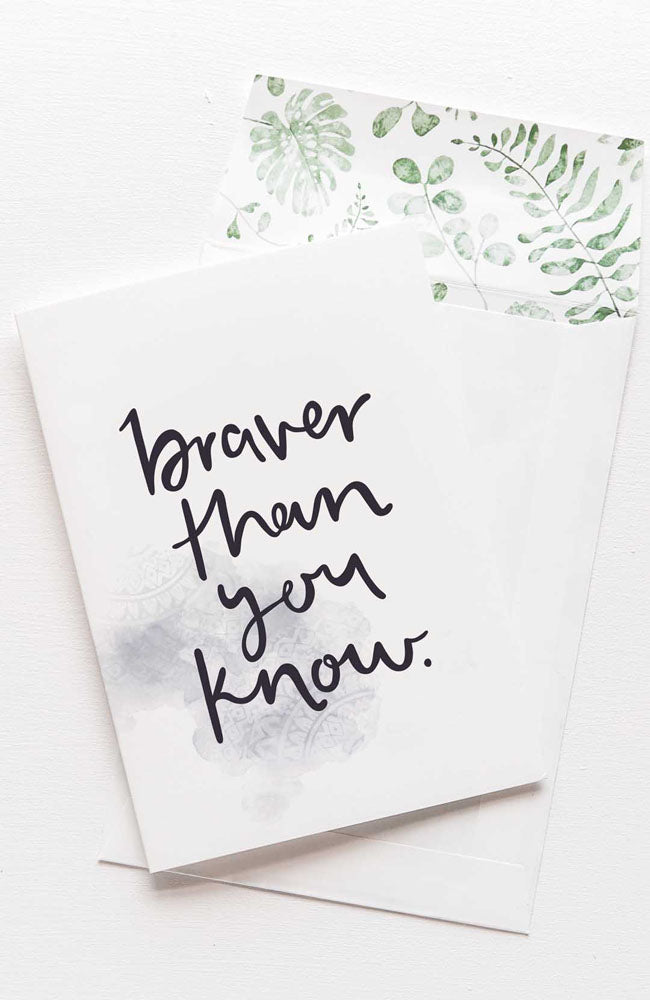 braver
than
you
know.